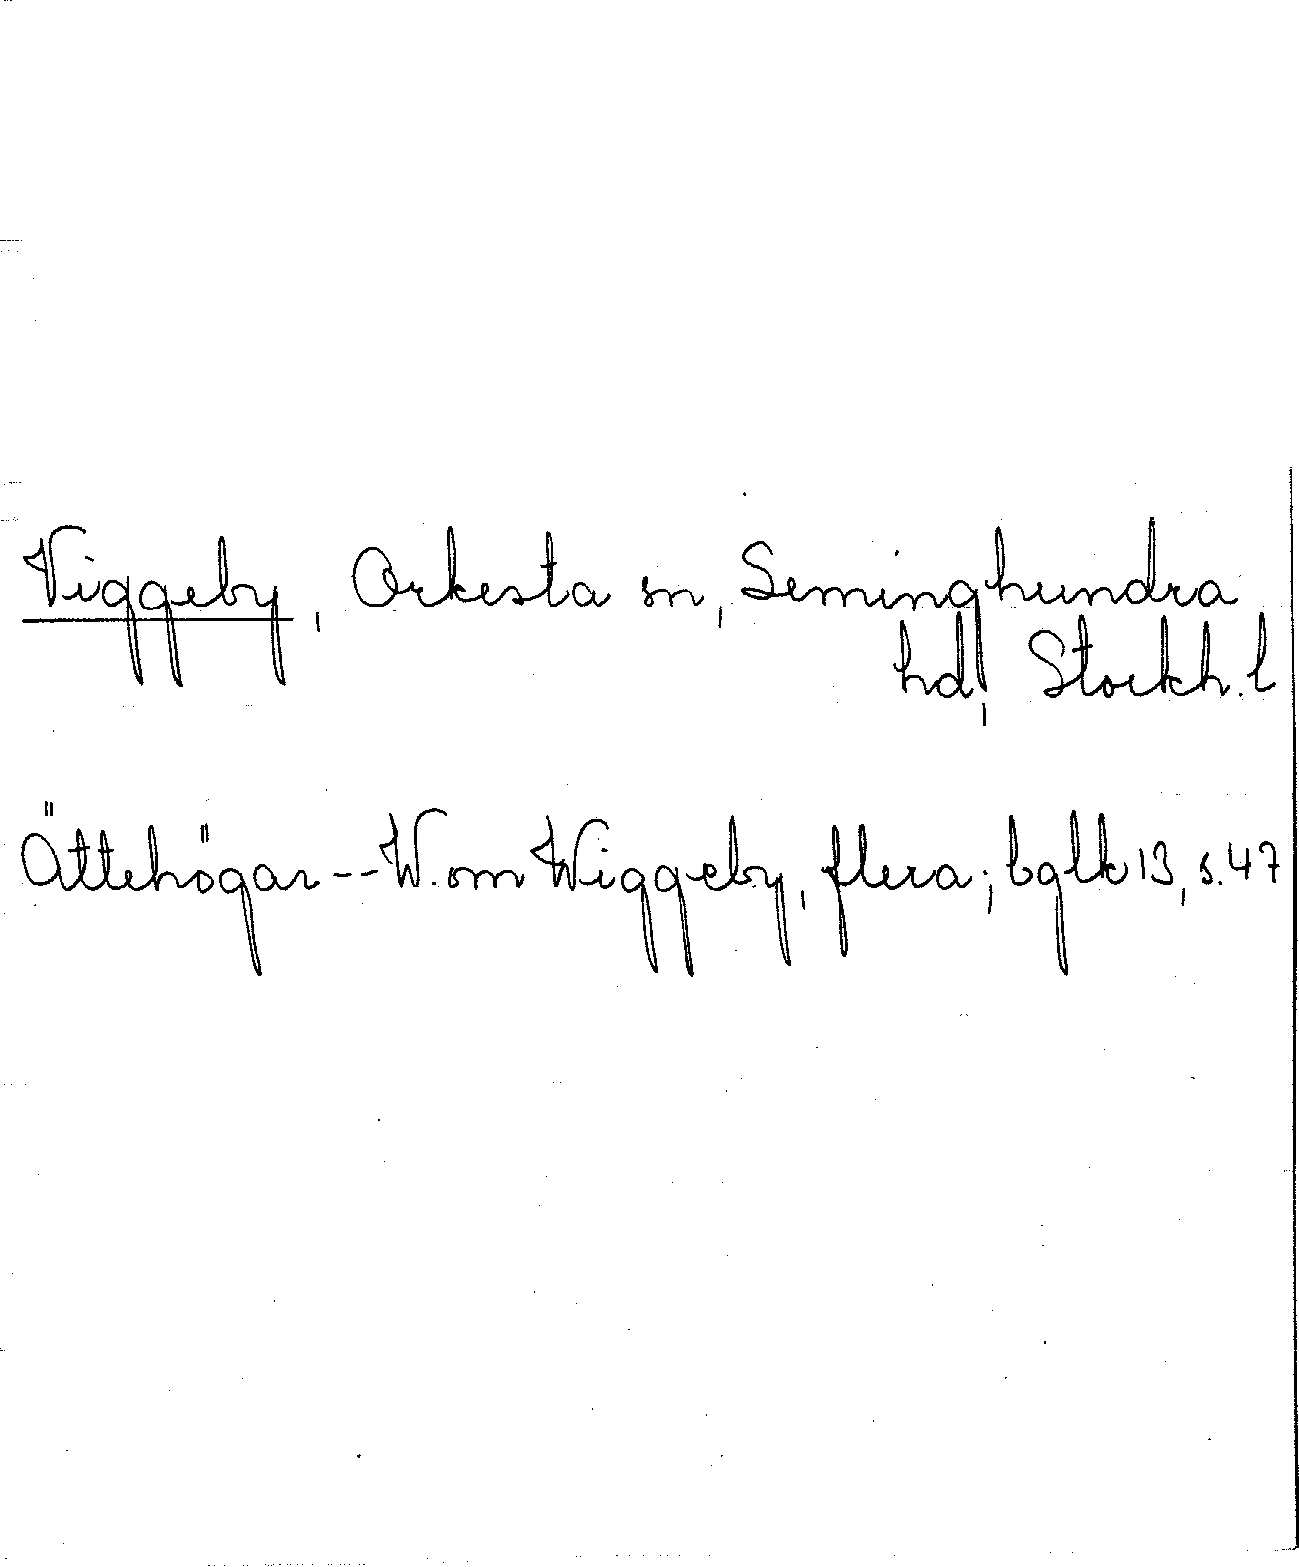 Viggeby, Orkesta sn, Seminghundra
hd, Stockh. l
Ättehögar -- W. om Wiggeby, flera; bglk 13, s. 47